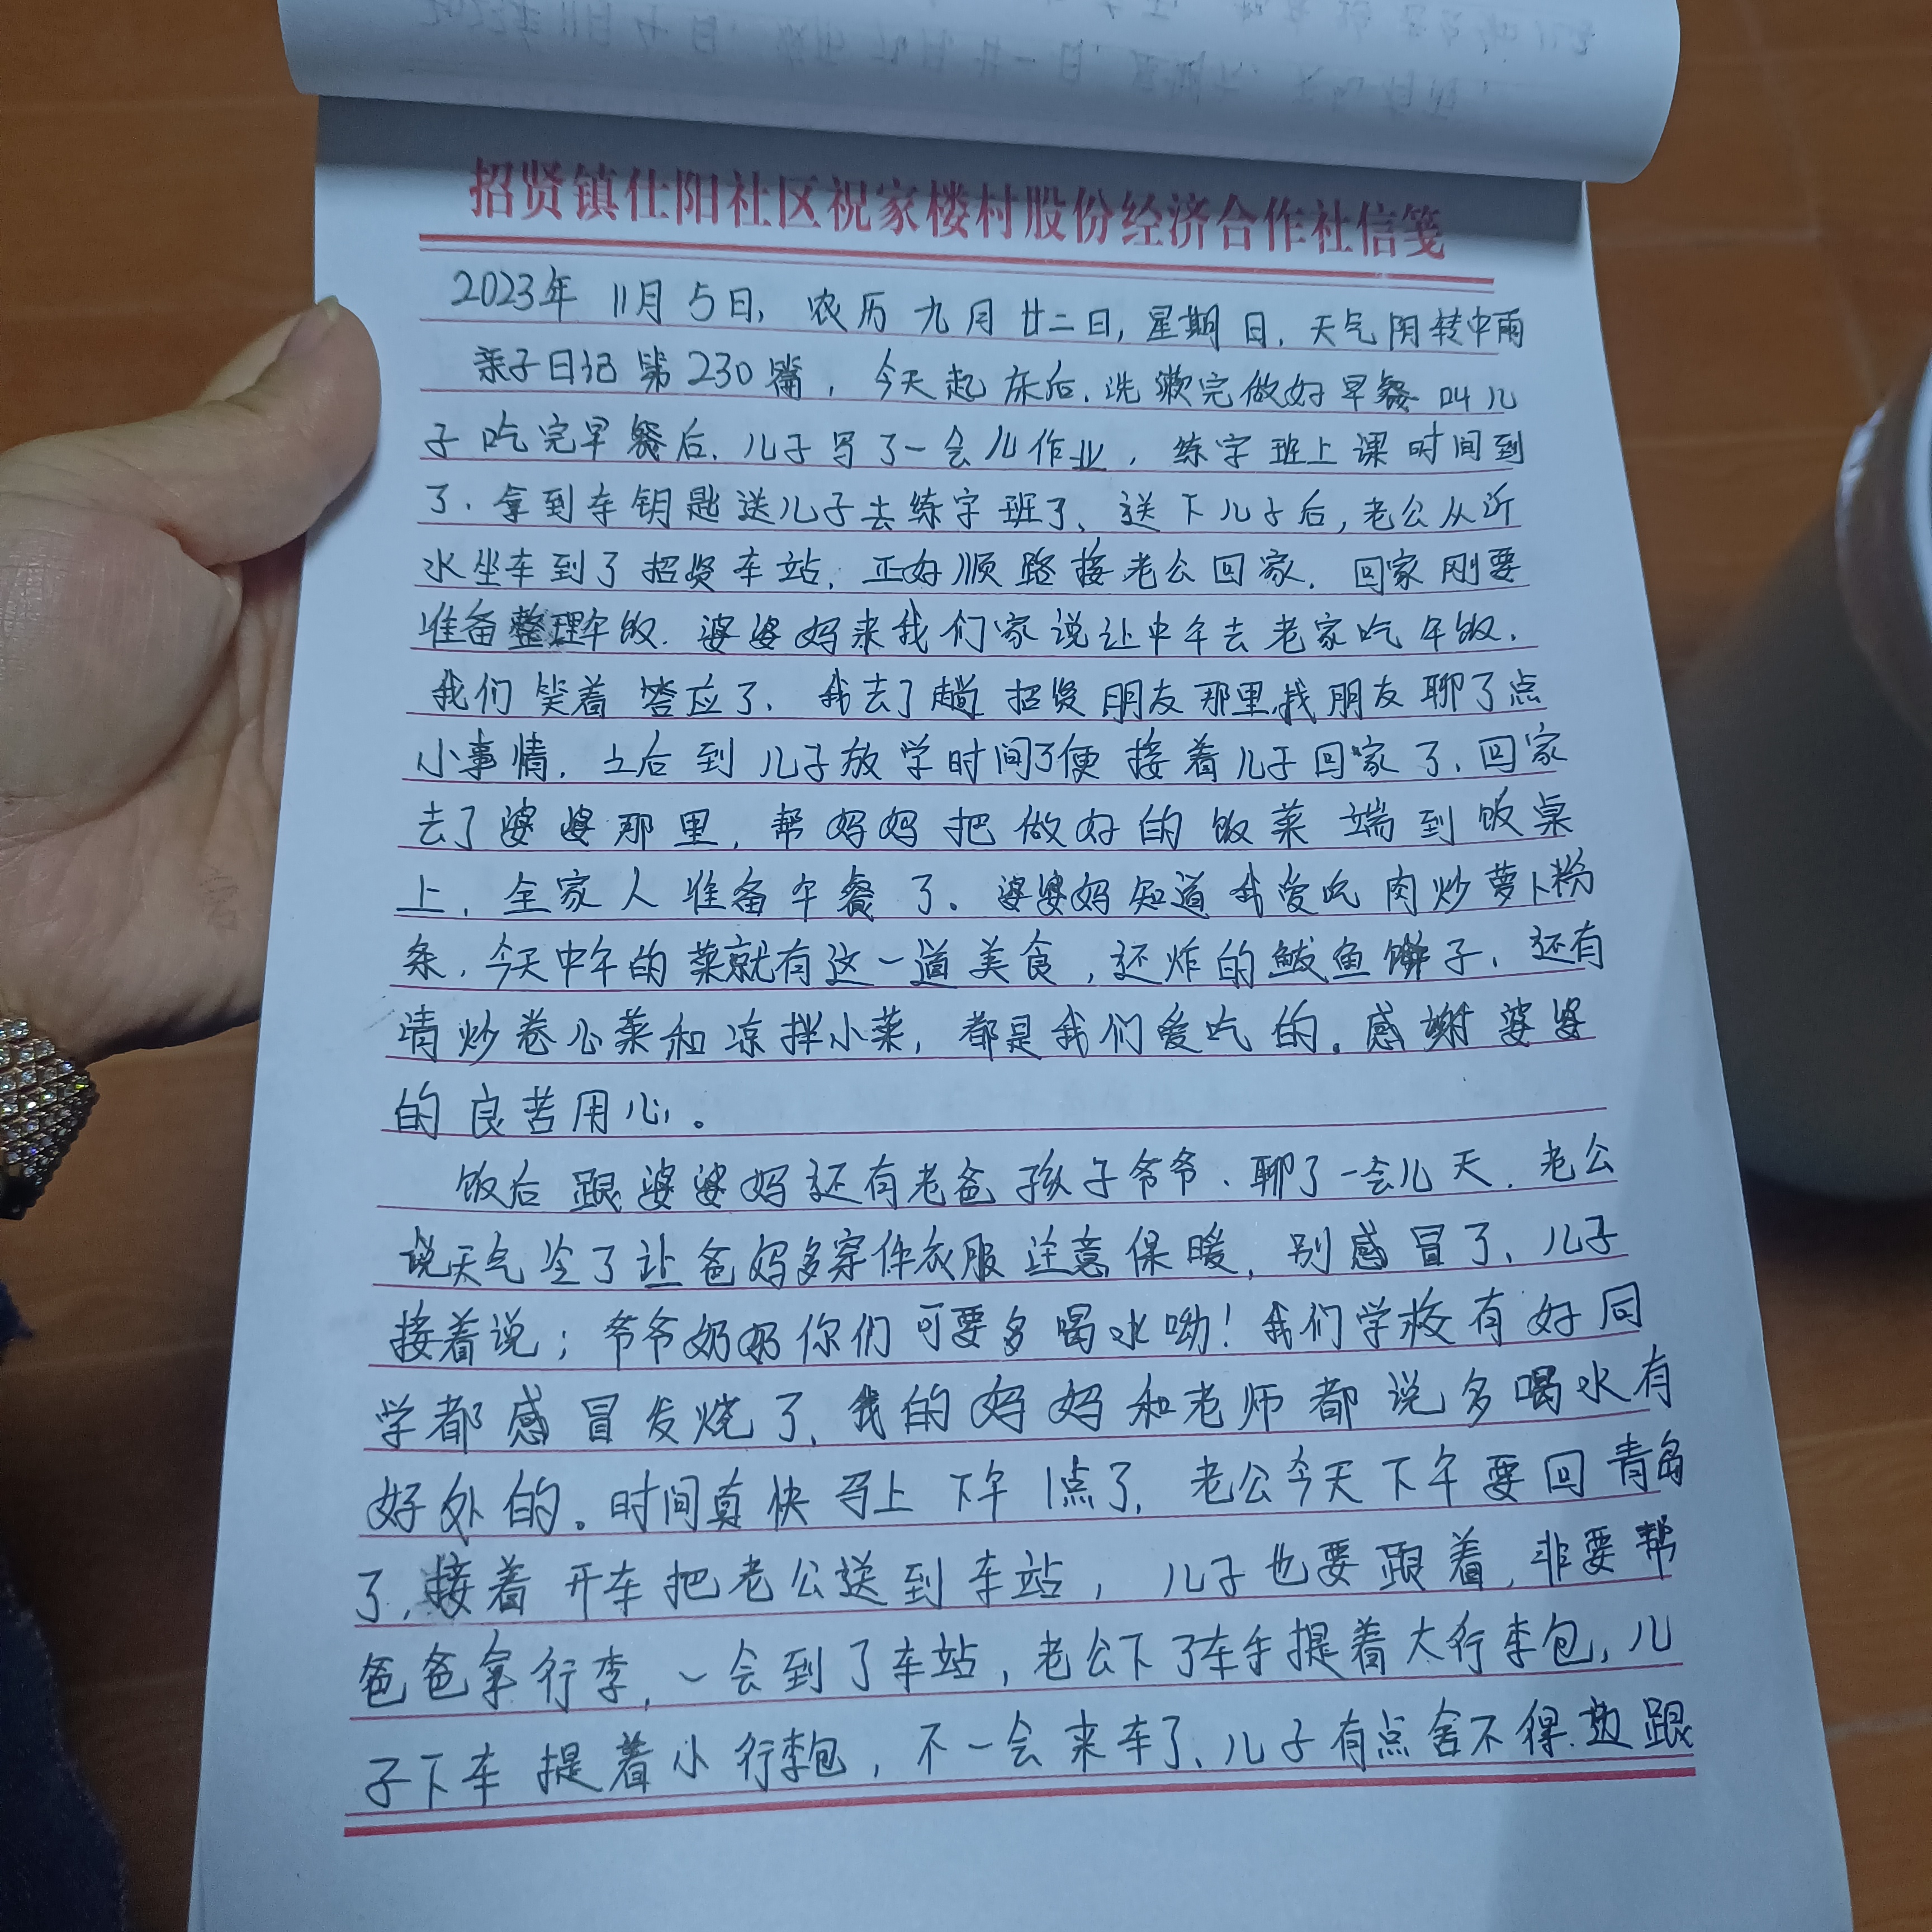 招贤镇仕阳社区祝家楼村股份经济合作社信笺
2023年 11月 5日, 农历 九月 廿二日, 星期日, 天气阴转中雨
亲子日记 第 230 篇, 今天起床后, 洗漱完做好早餐 叫儿
子吃完早餐后, 儿子写了一会儿作业, 练字班上课时间到
了, 拿到车钥匙送儿子去练字班了, 送下儿子后, 老公从沂
水坐车到了招贤车站, 正好顺路接老公回家, 回家刚要
准备整理午饭, 婆婆妈来我们家说让中午去老家吃午饭,
我们笑着答应了, 我去了趟招贤朋友那里,找朋友聊了点
小事情, 土后到儿子放学时间了便接着儿子回家了, 回家
去了婆婆那里, 帮妈妈把做好的饭菜端到饭桌
上, 全家人准备午餐了。婆婆妈知道我爱吃肉炒萝卜粉
条, 今天中午的菜就有这一道美食, 还炸的鲅鱼饼子, 还有
清炒卷心菜和凉拌小菜, 都是我们爱吃的。感谢婆婆
的良苦用心。
饭后跟婆婆妈还有老爸孩子爷爷、聊了一会儿天, 老公
说天气冷了让爸妈多穿件衣服注意保暖, 别感冒了、儿子
接着说; 爷爷奶奶你们可要多喝水呦! 我们学校有好同
学都感冒发烧了, 我的妈妈和老师都说多喝水有
好处的。时间真快马上下午1点了, 老公今天下午要回青岛
了, 接着开车把老公送到车站, 儿子也要跟着, 非要帮
爸爸拿行李, 一会到了车站, 老公下了车手提着大行李包, 儿
子下车提着小行李包, 不一会来车了、儿子有点舍不得, 边跟